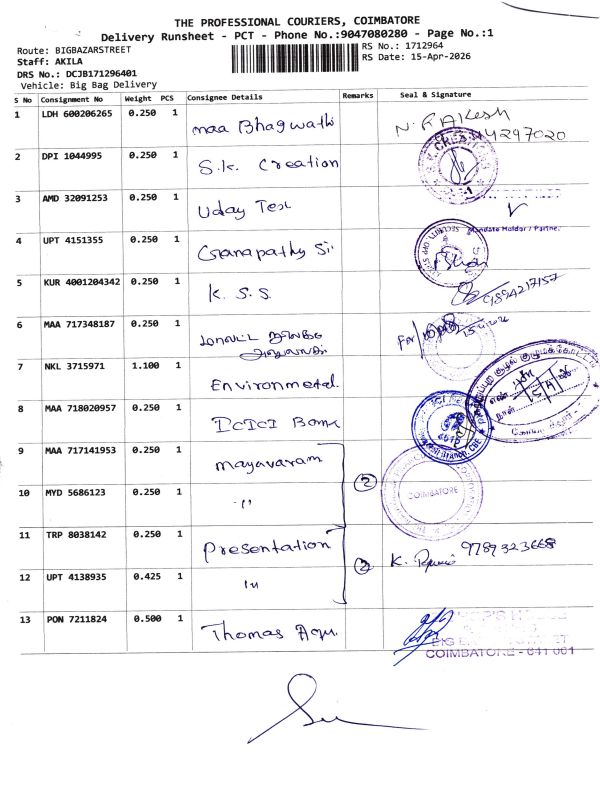 THE PROFESSIONAL COURIERS, COIMBATORE
Delivery Runsheet - PCT - Phone No.:9047080280 - Page No.:1
Route: BIGBAZARSTREET
RS No.: 1712964
Staff: AKILA
RS Date: 15-Apr-2026
DRS No.: DCJB171296401
Vehicle: Big Bag Delivery
S No Consignment No Weight PCS Consignee Details Remarks Seal & Signature
1 LDH 600206265 0.250 1 Maa Bhagwathi N. RAKesh
2 DPI 1044995 0.250 1 S.K. Creation
3 AMD 32091253 0.250 1 Uday Tex
4 UPT 4151355 0.250 1 Ganapathy Si.
5 KUR 4001204342 0.250 1 K. S. S. 9894217157
6 MAA 717348187 0.250 1 For
7 NKL 3715971 1.100 1 Environmetal.
8 MAA 718020957 0.250 1 ICICI Bank
9 MAA 717141953 0.250 1 Mayavaram
10 MYD 5686123 0.250 1 〃 2 COIMBATORE
11 TRP 8038142 0.250 1 Presentation
12 UPT 4138935 0.425 1 〃 2 K. 9789323668
13 PON 7211824 0.500 1 Thomas Aqu.
COIMBATORE - 641 001